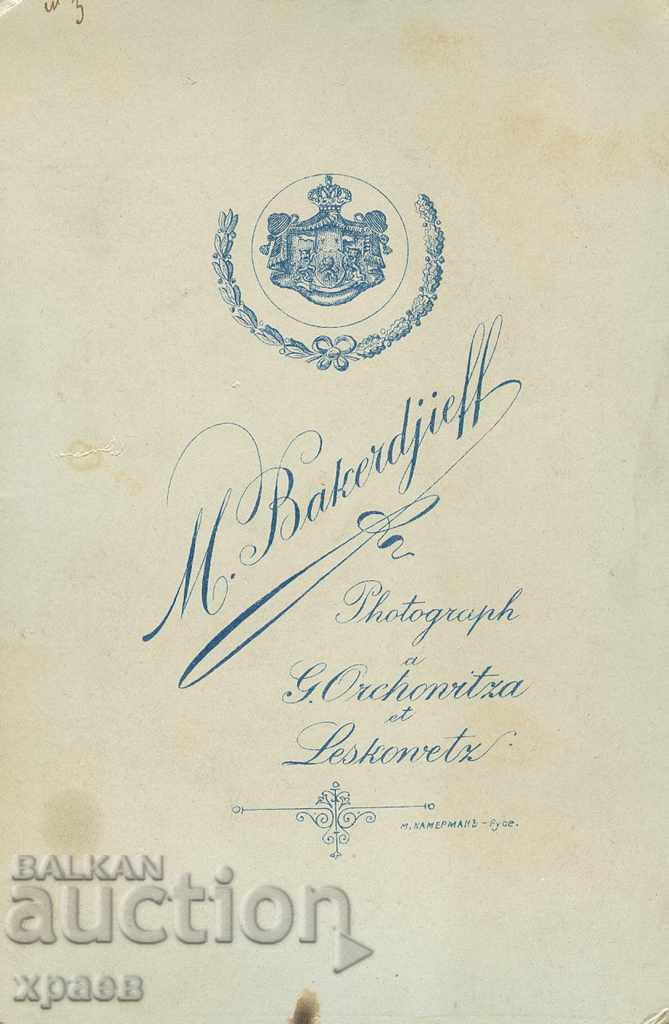 M. Bakerdjieff
Photograph
a
G. Orchowitza
et
Leskowetz
М. КАМЕРМАНЪ – Русе.
BALKAN
auction
храев